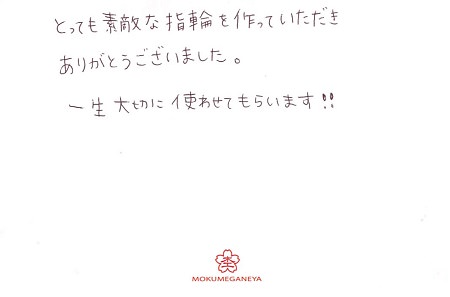 とっても素敵な指輪を作っていただき
ありがとうございました。
一生大切に使わせてもらいます!!
MOKUMEGANEYA